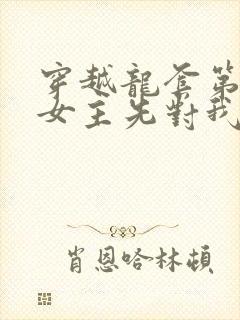 穿越龍套第
女主先對我
肖恩哈林頓